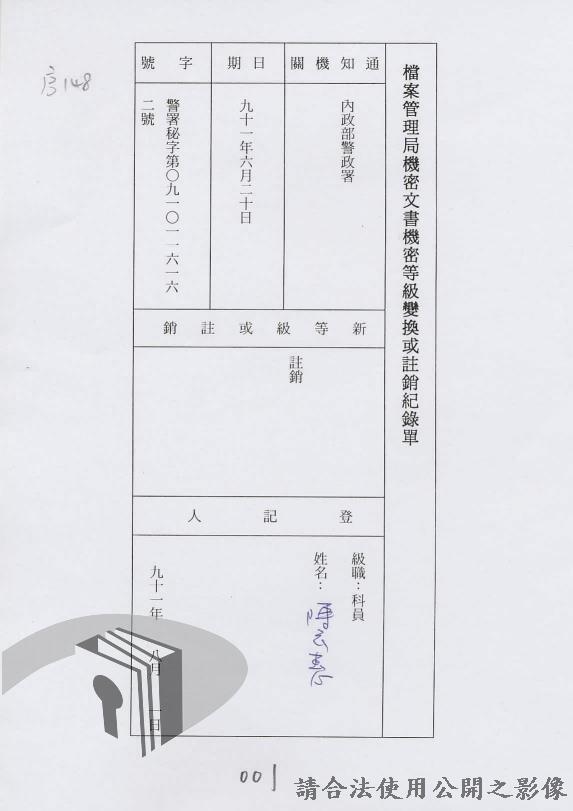 檔案管理局機密文書機密等級變換或註銷紀錄單
通知機關
內政部警政署
日期
九十一年六月二十日
字號
警署秘字第〇九一〇一一六一六
二號
新等級或註銷
註銷
登記人
級職：科員
姓名：
九十一年 八月 一日
序148
001
請合法使用公開之影像